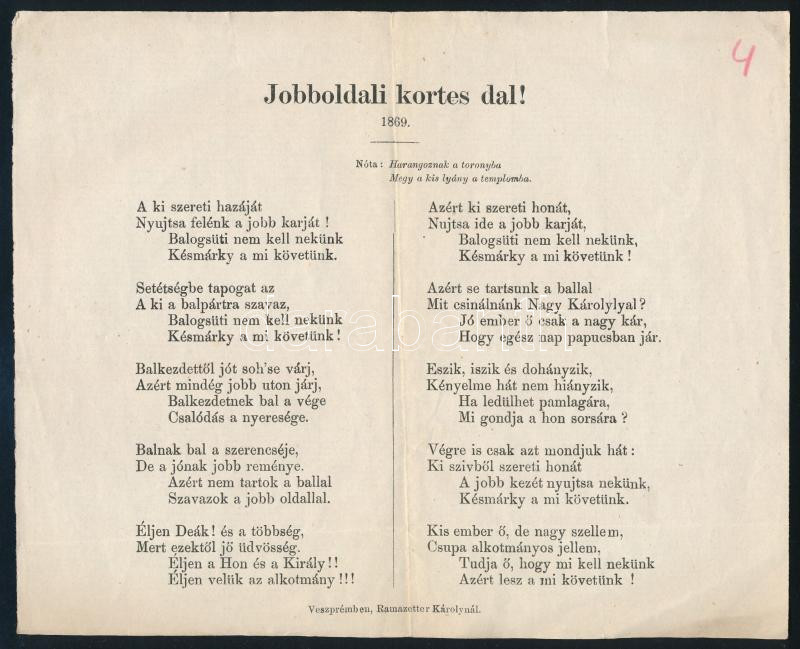 4
Jobboldali kortes dal!
1869.
Nóta: Harangoznak a toronyba
Megy a kis lyány a templomba.
A ki szereti hazáját
Nyujtsa felénk a jobb karját !
Balogsüti nem kell nekünk
Késmárky a mi követünk.
Setétségbe tapogat az
A ki a balpártra szavaz,
Balogsüti nem kell nekünk
Késmárky a mi követünk!
Balkezdettől jót soh'se várj,
Azért mindég jobb uton járj,
Balkezdetnek bal a vége
Csalódás a nyeresége.
Balnak bal a szerencséje,
De a jónak jobb reménye.
Azért nem tartok a ballal
Szavazok a jobb oldallal.
Éljen Deák! és a többség,
Mert ezektől jő üdvösség.
Éljen a Hon és a Király!!
Éljen velük az alkotmány!!!
Azért ki szereti honát,
Nujtsa ide a jobb karját,
Balogsüti nem kell nekünk,
Késmárky a mi követünk!
Azért se tartsunk a ballal
Mit csinálnánk Nagy Károlylyal?
Jó ember ő csak a nagy kár,
Hogy egész nap papucsban jár.
Eszik, iszik és dohányzik,
Kényelme hát nem hiányzik,
Ha ledülhet pamlagára,
Mi gondja a hon sorsára ?
Végre is csak azt mondjuk hát:
Ki szivből szereti honát
A jobb kezét nyujtsa nekünk,
Késmárky a mi követünk.
Kis ember ő, de nagy szellem,
Csupa alkotmányos jellem,
Tudja ő, hogy mi kell nekünk
Azért lesz a mi követünk !
Veszprémben, Ramazetter Károlynál.
darabanth